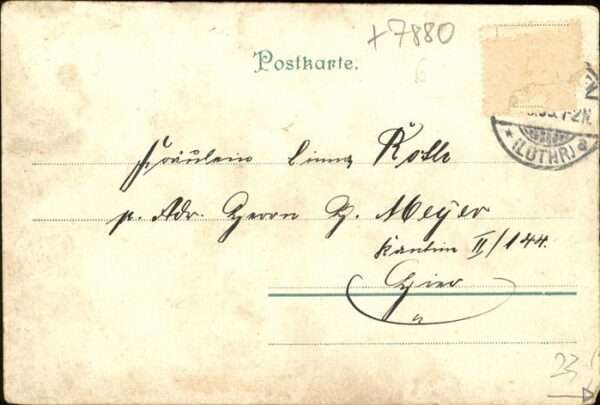 +7880
Postkarte.
1-2N.
* (LOTHR.) a
Fräulein Anna Roth
p. Adr. Herrn H. Meyer
Kantine II/144.
Hier
23